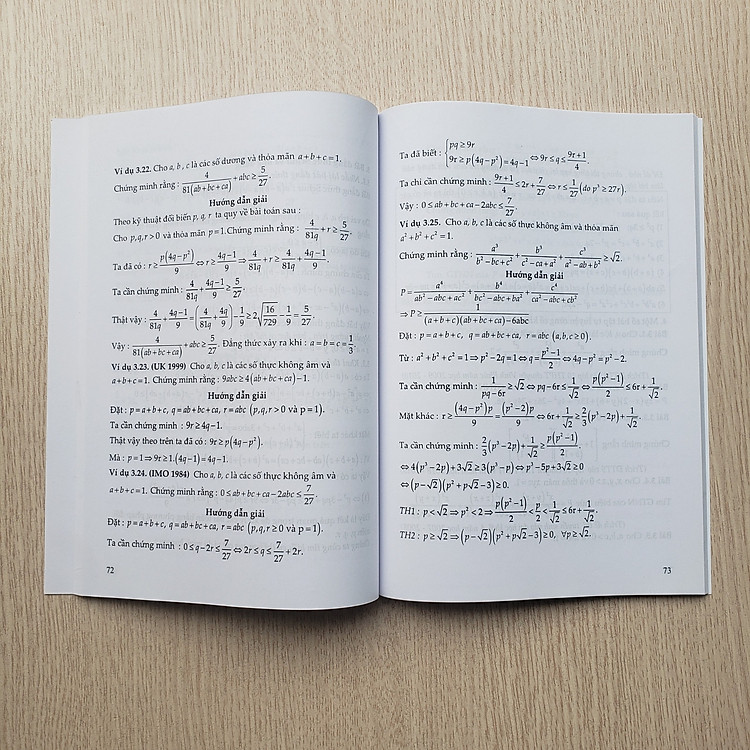 Ví dụ 3.22. Cho a, b, c là các số dương và thỏa mãn a+b+c=1.
Chứng minh rằng : 4/(81(ab+bc+ca)) + abc ≥ 5/27.
Hướng dẫn giải
Theo kỹ thuật đổi biến p, q, r ta quy về bài toán sau :
Cho p,q,r>0 và thỏa mãn p=1. Chứng minh rằng : 4/(81q) + r ≥ 5/27.
Ta đã có : r ≥ p(4q−p²)/9 ⇔ r ≥ (4q−1)/9 ⇒ 4/(81q) + r ≥ 4/(81q) + (4q−1)/9.
Ta cần chứng minh : 4/(81q) + (4q−1)/9 ≥ 5/27.
Thật vậy : 4/(81q) + (4q−1)/9 = (4/(81q) + 4q/9) − 1/9 ≥ 2√(16/729) − 1/9 = 5/27.
Vậy : 4/(81(ab+bc+ca)) + abc ≥ 5/27. Đẳng thức xảy ra khi : a=b=c=1/3.
Ví dụ 3.23. (UK 1999) Cho a, b, c là các số thực không âm và
a+b+c=1. Chứng minh rằng : 9abc ≥ 4(ab+bc+ca)−1.
Hướng dẫn giải
Đặt : p=a+b+c, q=ab+bc+ca, r=abc (p,q,r>0 và p=1).
Ta cần chứng minh : 9r ≥ 4q−1.
Thật vậy theo trên ta đã có : 9r ≥ p(4q−p²).
Mà : p=1 ⇒ 9r ≥ 1.(4q−1) = 4q−1.
Ví dụ 3.24. (IMO 1984) Cho a, b, c là các số thực không âm và
a+b+c=1. Chứng minh rằng : 0 ≤ ab+bc+ca−2abc ≤ 7/27.
Hướng dẫn giải
Đặt : p=a+b+c, q=ab+bc+ca, r=abc (p,q,r≥0 và p=1).
Ta cần chứng minh : 0 ≤ q−2r ≤ 7/27 ⇔ 2r ≤ q ≤ 7/27 + 2r.
72
Ta đã biết : {pq ≥ 9r
9r ≥ p(4q−p²) = 4q−1 ⇔ 9r ≤ q ≤ (9r+1)/4.
Ta chỉ cần chứng minh : (9r+1)/4 ≤ 2r + 7/27 ⇔ r ≤ 1/27 (do p³ ≥ 27r).
Vậy : 0 ≤ ab+bc+ca−2abc ≤ 7/27.
Ví dụ 3.25. Cho a, b, c là các số thực không âm và thỏa mãn
a²+b²+c²=1.
Chứng minh rằng : a³/(b²−bc+c²) + b³/(c²−ca+a²) + c³/(a²−ab+b²) ≥ √2.
Hướng dẫn giải
P = a⁴/(ab²−abc+ac²) + b⁴/(bc²−abc+ba²) + c⁴/(ca²−abc+cb²)
⇒ P ≥ 1/((a+b+c)(ab+bc+ca)−6abc)
Đặt : p=a+b+c, q=ab+bc+ca, r=abc (a,b,c≥0).
Từ : a²+b²+c²=1 ⇒ p²−2q=1 ⇔ q=(p²−1)/2 ⇔ 4q−p²=p²−2.
Ta cần chứng minh : 1/(pq−6r) ≥ √2 ⇔ pq−6r ≤ 1/√2 ⇔ p(p²−1)/2 ≤ 6r + 1/√2.
Mặt khác : r ≥ (4q−p²)p/9 = (p²−2)p/9 ⇔ 6r + 1/√2 ≥ 2/3(p³−2p) + 1/√2.
Ta cần chứng minh : 2/3(p³−2p) + 1/√2 ≥ p(p²−1)/2.
⇔ 4(p³−2p)+3√2 ≥ 3(p³−p) ⇔ p³−5p+3√2 ≥ 0
⇔ (p−√2)(p²+p√2−3) ≥ 0.
TH1 : p<√2 ⇒ p²<2 ⇒ p(p²−1)/2 < p/2 < 1/√2 ≤ 6r + 1/√2.
TH2 : p ≥ √2 ⇒ (p−√2)(p²+p√2−3) ≥ 0, ∀p ≥ √2.
73